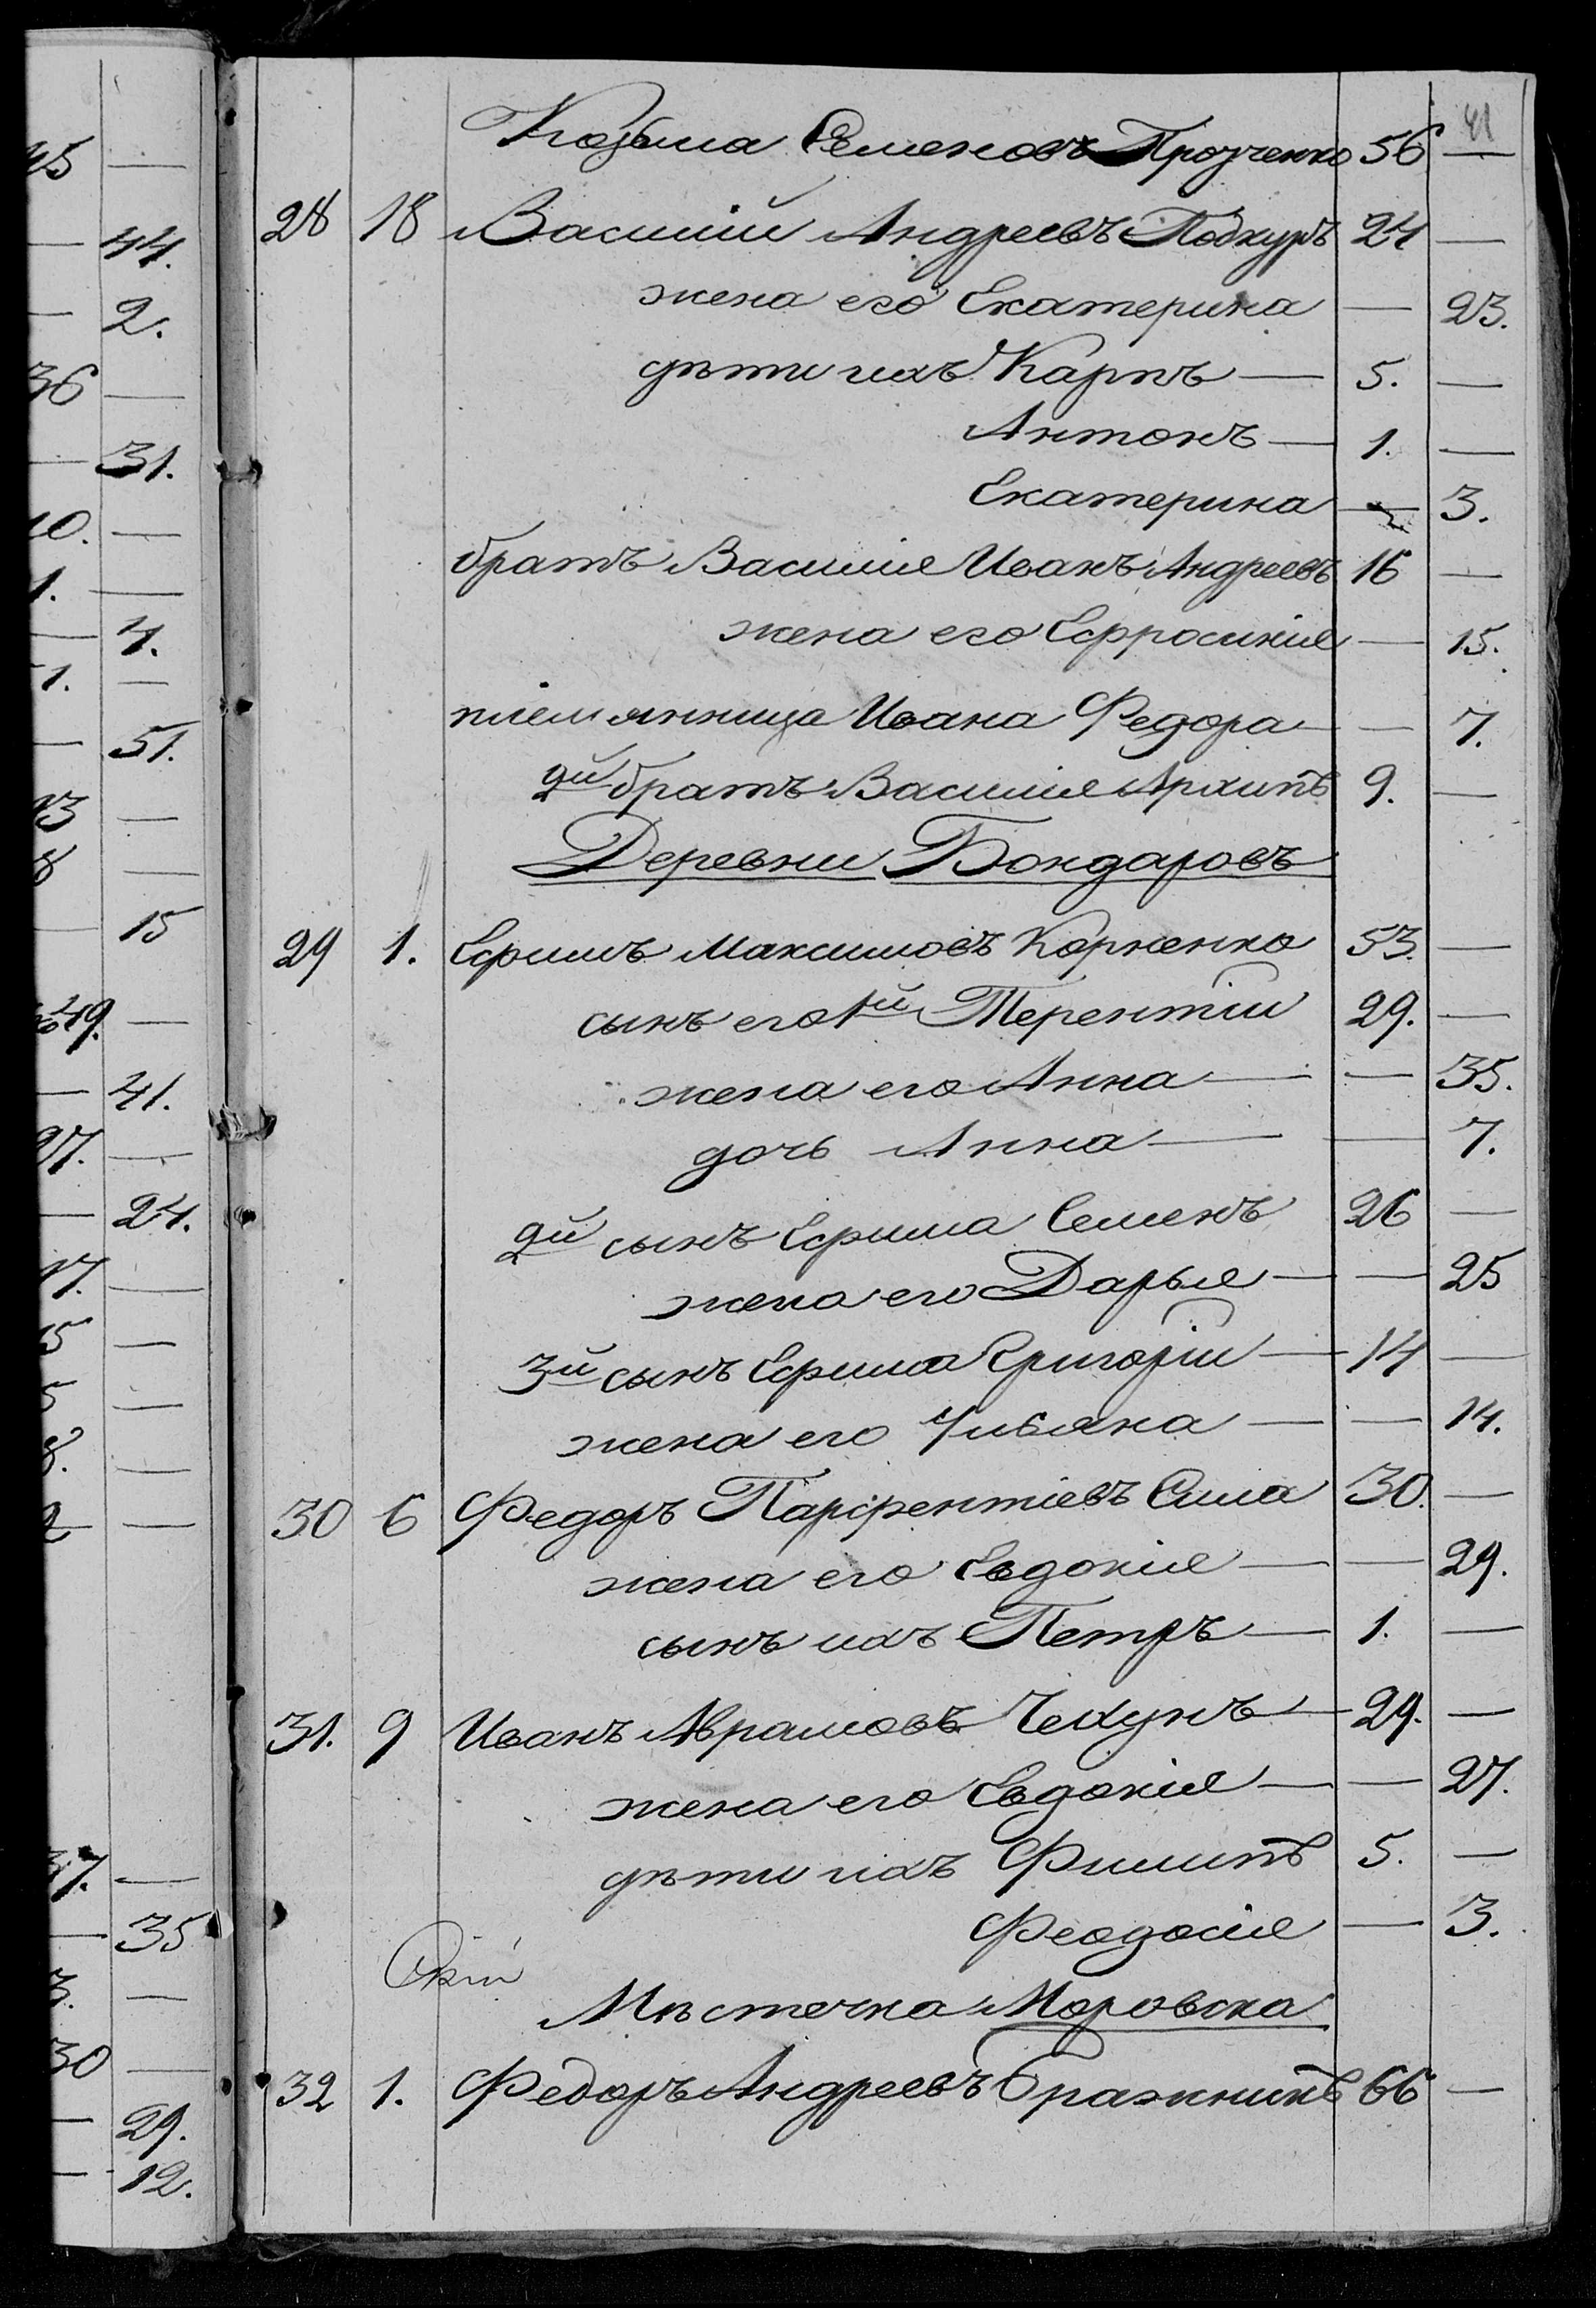 45 —
— 44.
— 2.
36 —
— 31.
10. —
1. —
— 4.
1. —
— 51.
13 —
8 —
— 15
49. —
— 41.
27. —
— 24.
17. —
15 —
5 —
8. —
2 —
37. —
— 35
3. —
30 —
— 29.
— 12.
41
Козьма Семеновъ Прохченко 56 —
28 18 Василій Андреевъ Подкуръ 24 —
жена его Екатерина — 23.
дѣти ихъ Карпъ — 5. —
Антонъ — 1. —
Екатерина — 3.
братъ Василія Иванъ Андреевъ 16 —
жена его Ефросинія — 15.
племянница Ивана Федора — 7.
2й братъ Василія Архипъ 9. —
Деревни Бондаровъ
29 1. Ефимъ Максимовъ Корженко 53. —
сынъ его 1й Терентій 29. —
жена его Анна — — 35.
дочь Анна — — 7.
2й сынъ Ефима Семенъ 26 —
жена его Дарья — — 25
3й сынъ Ефима Григорій — 14 —
жена его Ульяна — — 14.
30 6 Федоръ Парфентіевъ Сила 30. —
жена его Евдокія — — 29.
сынъ ихъ Петръ — 1. —
31. 9 Иванъ Аврамовъ Чехунъ — 29. —
жена его Евдокія — — 27.
дѣти ихъ Филипъ 5. —
Феодосія — 3.
Мѣстечка Моровска
32 1. Федоръ Андреевъ Бражникъ 66 —